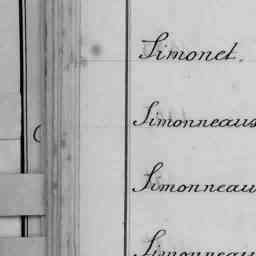 Simonet.
Simonneaus
Simonneau
Simonneau